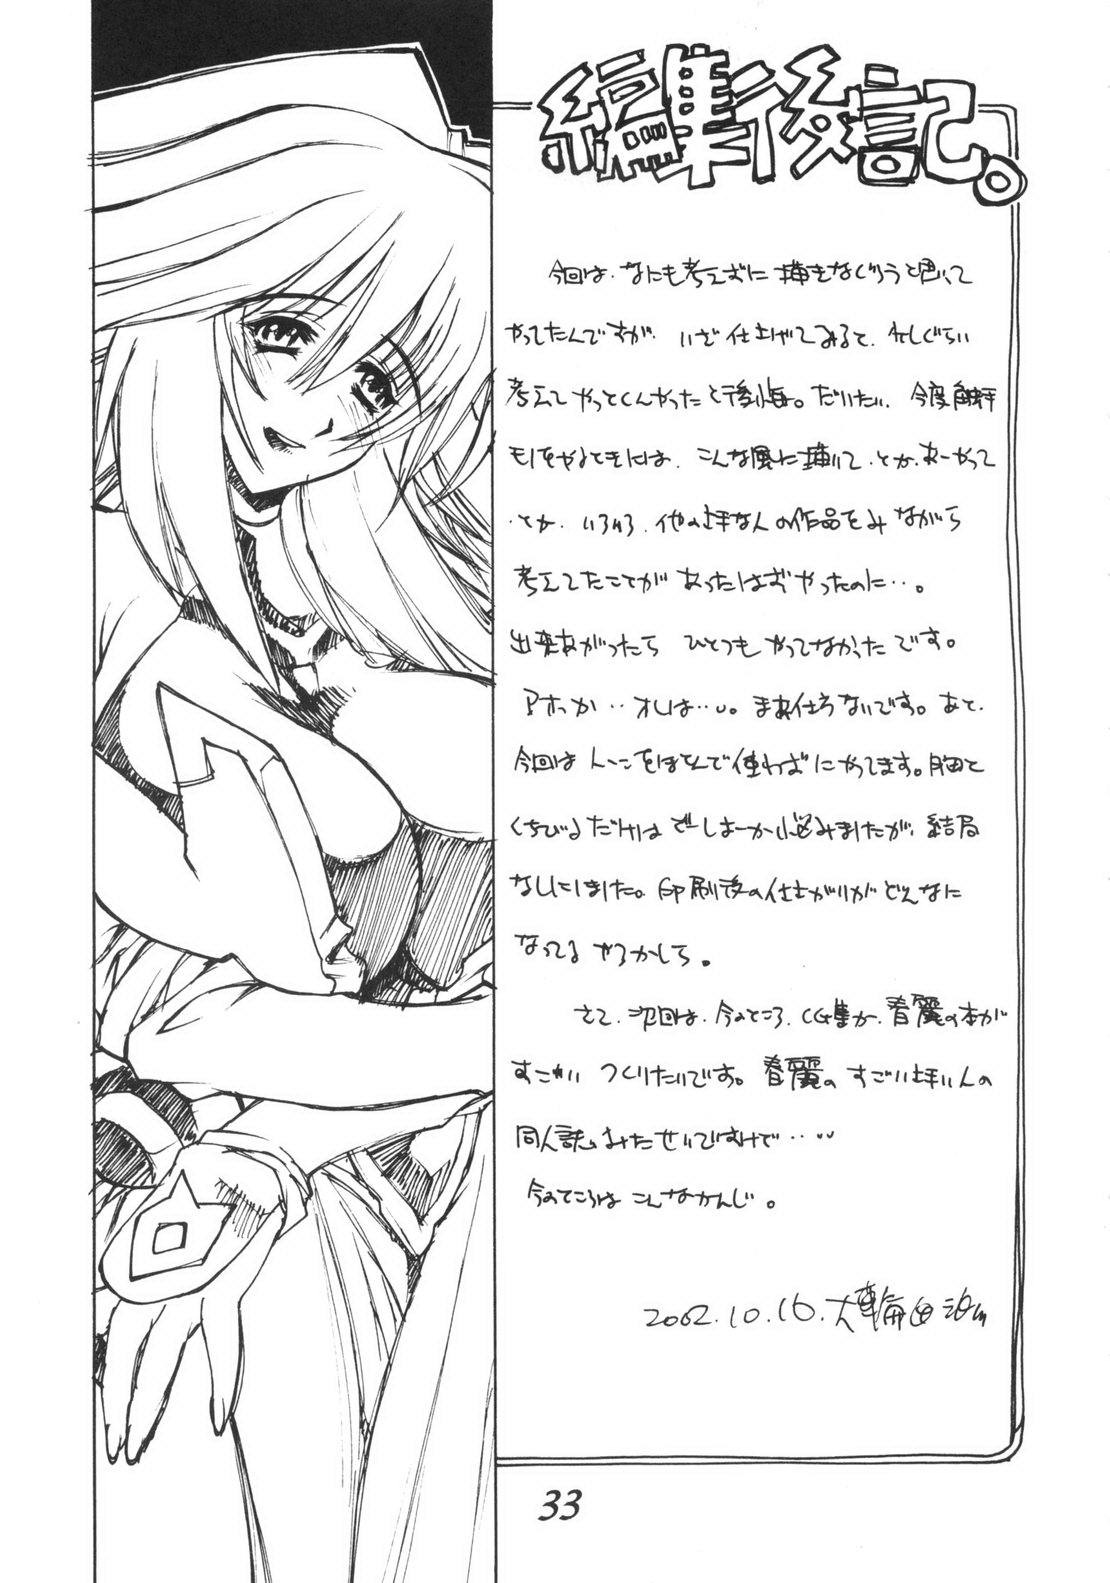 編集後記。
今回は、なにも考えずに描きなぐろうと思って
やってたんですが、いざ仕上げてみると、少しぐらい
考えてやっとくんやったと後悔。だいたい、今度
やるときには、こんな風に描いて、とか、あーやって
とか、いろいろ、他の上手な人の作品をみながら
考えてたことがあったはずやったのに…。
出来あがったら ひとつも やってなかったです。
アホか‥オレは…。まあ仕方ないです。あと、
今回はトーンをほとんど使わずにやってます。胸と
くちびるだけはどーしよーか悩みましたが、結局
なしにしました。印刷後の仕上がりがどんなに
なってるやろかしら。
さて、次回は、今のところ、CG集か、春麗の本が
すごい つくりたいです。春麗の すごい上手い人の
同人誌、みたせいですけど……
今のところは こんなかんじ。
2002.10.16.大輪田
33